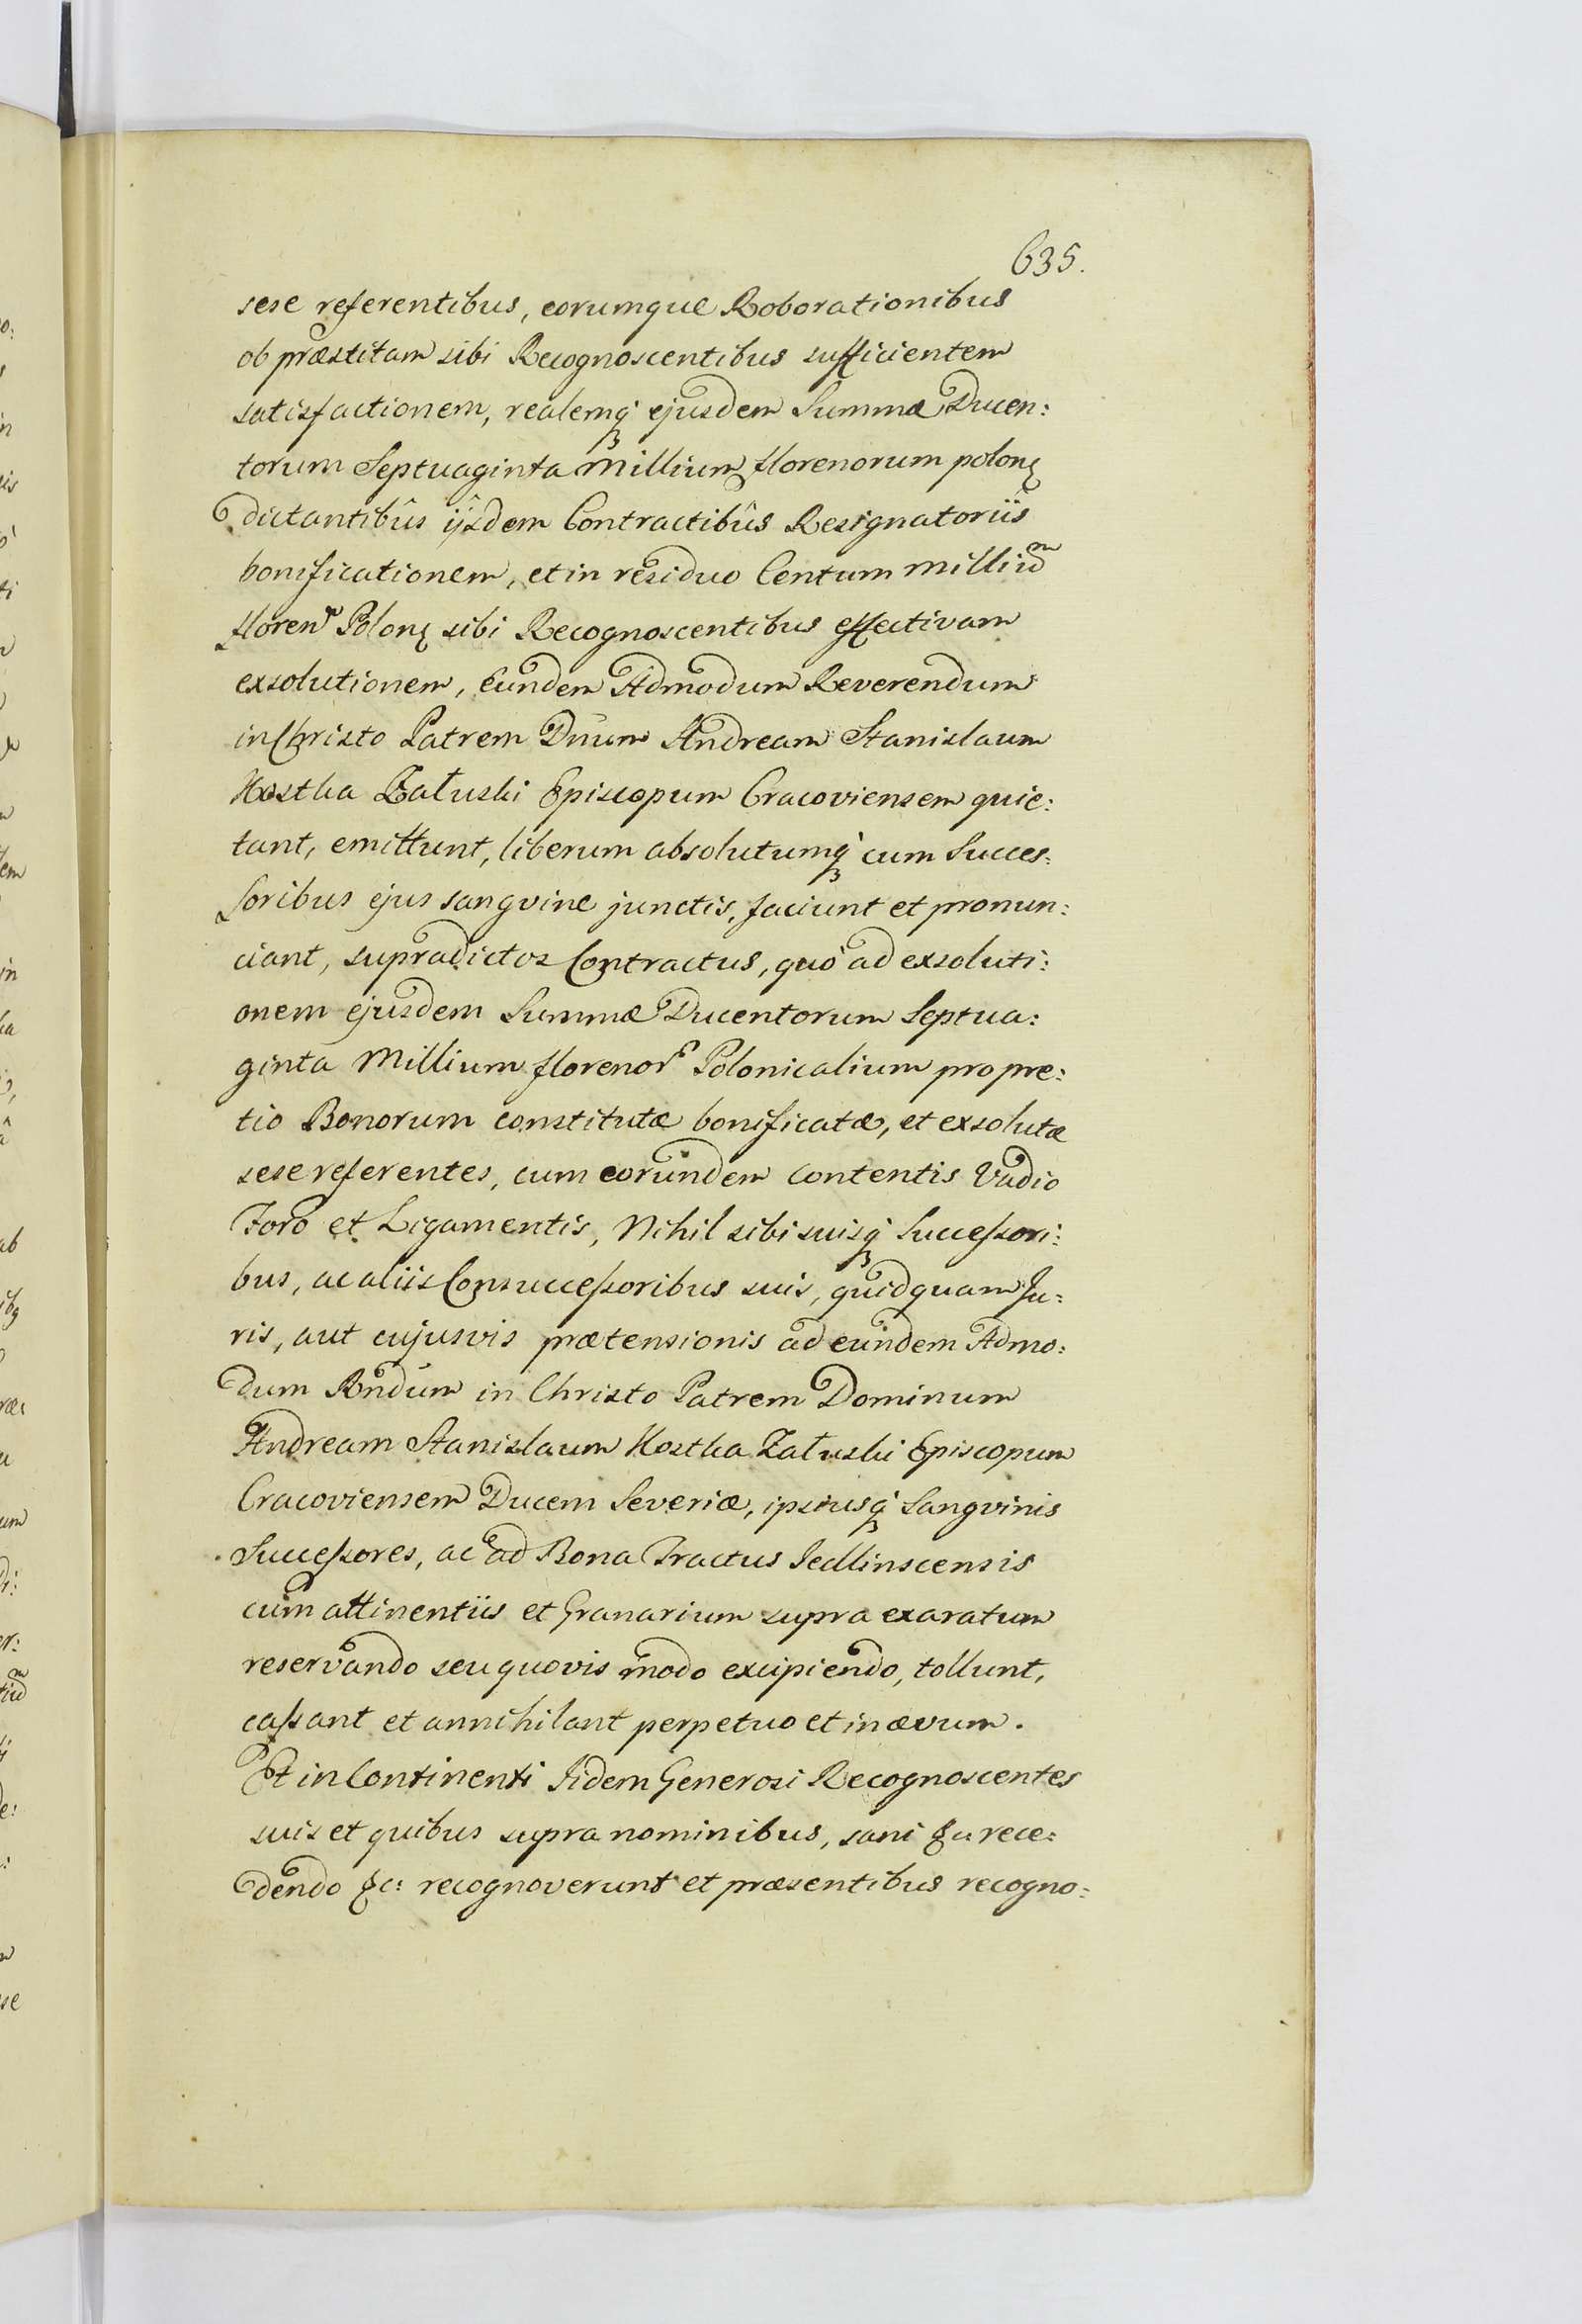 635.
sese referentibus, eorumque Roborationibus
ob præstitam sibi Recognoscentibus sufficientem
satisfactionem, realemq́ ejusdem Summæ Ducen:
torum Septuaginta Millium florenorum polon
dictantibûs ijsdem Contractibûs Resignatoriis
bonificationem, et in residuo Centum milliū
floren Polon sibi Recognoscentibus effectivam
exsolutionem, Eundem Admodum Reverendum
in Christo Patrem Dnum Andream Stanislaum
Kostka Załuski Episcopum Cracoviensem quie:
tant, emittunt, liberum absolutumq́ cum Succes:
soribus ejus sangvine junctis, faciunt et pronun:
ciant, supradictos Contractus, quò ad exsoluti:
onem ejusdem Summæ Ducentorum Septua:
ginta Millium florenor Polonicalium pro pre:
tio Bonorum constitutæ bonificatæ, et exsolutæ
sese referentes, cum eorundem contentis Vadio
Foro et Ligamentis, Nihil sibi suisq́ Successori:
bus, ac aliis Consuccessoribus suis, quidquam Ju:
ris, aut cujusvis prætensionis ad eundem Admo:
dum Rndum in Christo Patrem Dominum
Andream Stanislaum Kostka Załuski Episcopum
Cracoviensem Ducem Severiæ, ipsiusq́ Sangvinis
Successores, ac ad Bona Tractus Jedlinscensis
cum attinentiis et Granarium supra exaratum
reservando seu quovis modo excipiendo, tollunt,
cassant et annihilant perpetuo et in ævum.
Et in Continenti Iidem Generosi Recognoscentes
suis et quibus supra nominibus, sani &a rece:
dendo &c: recognoverunt et præsentibus recogno: